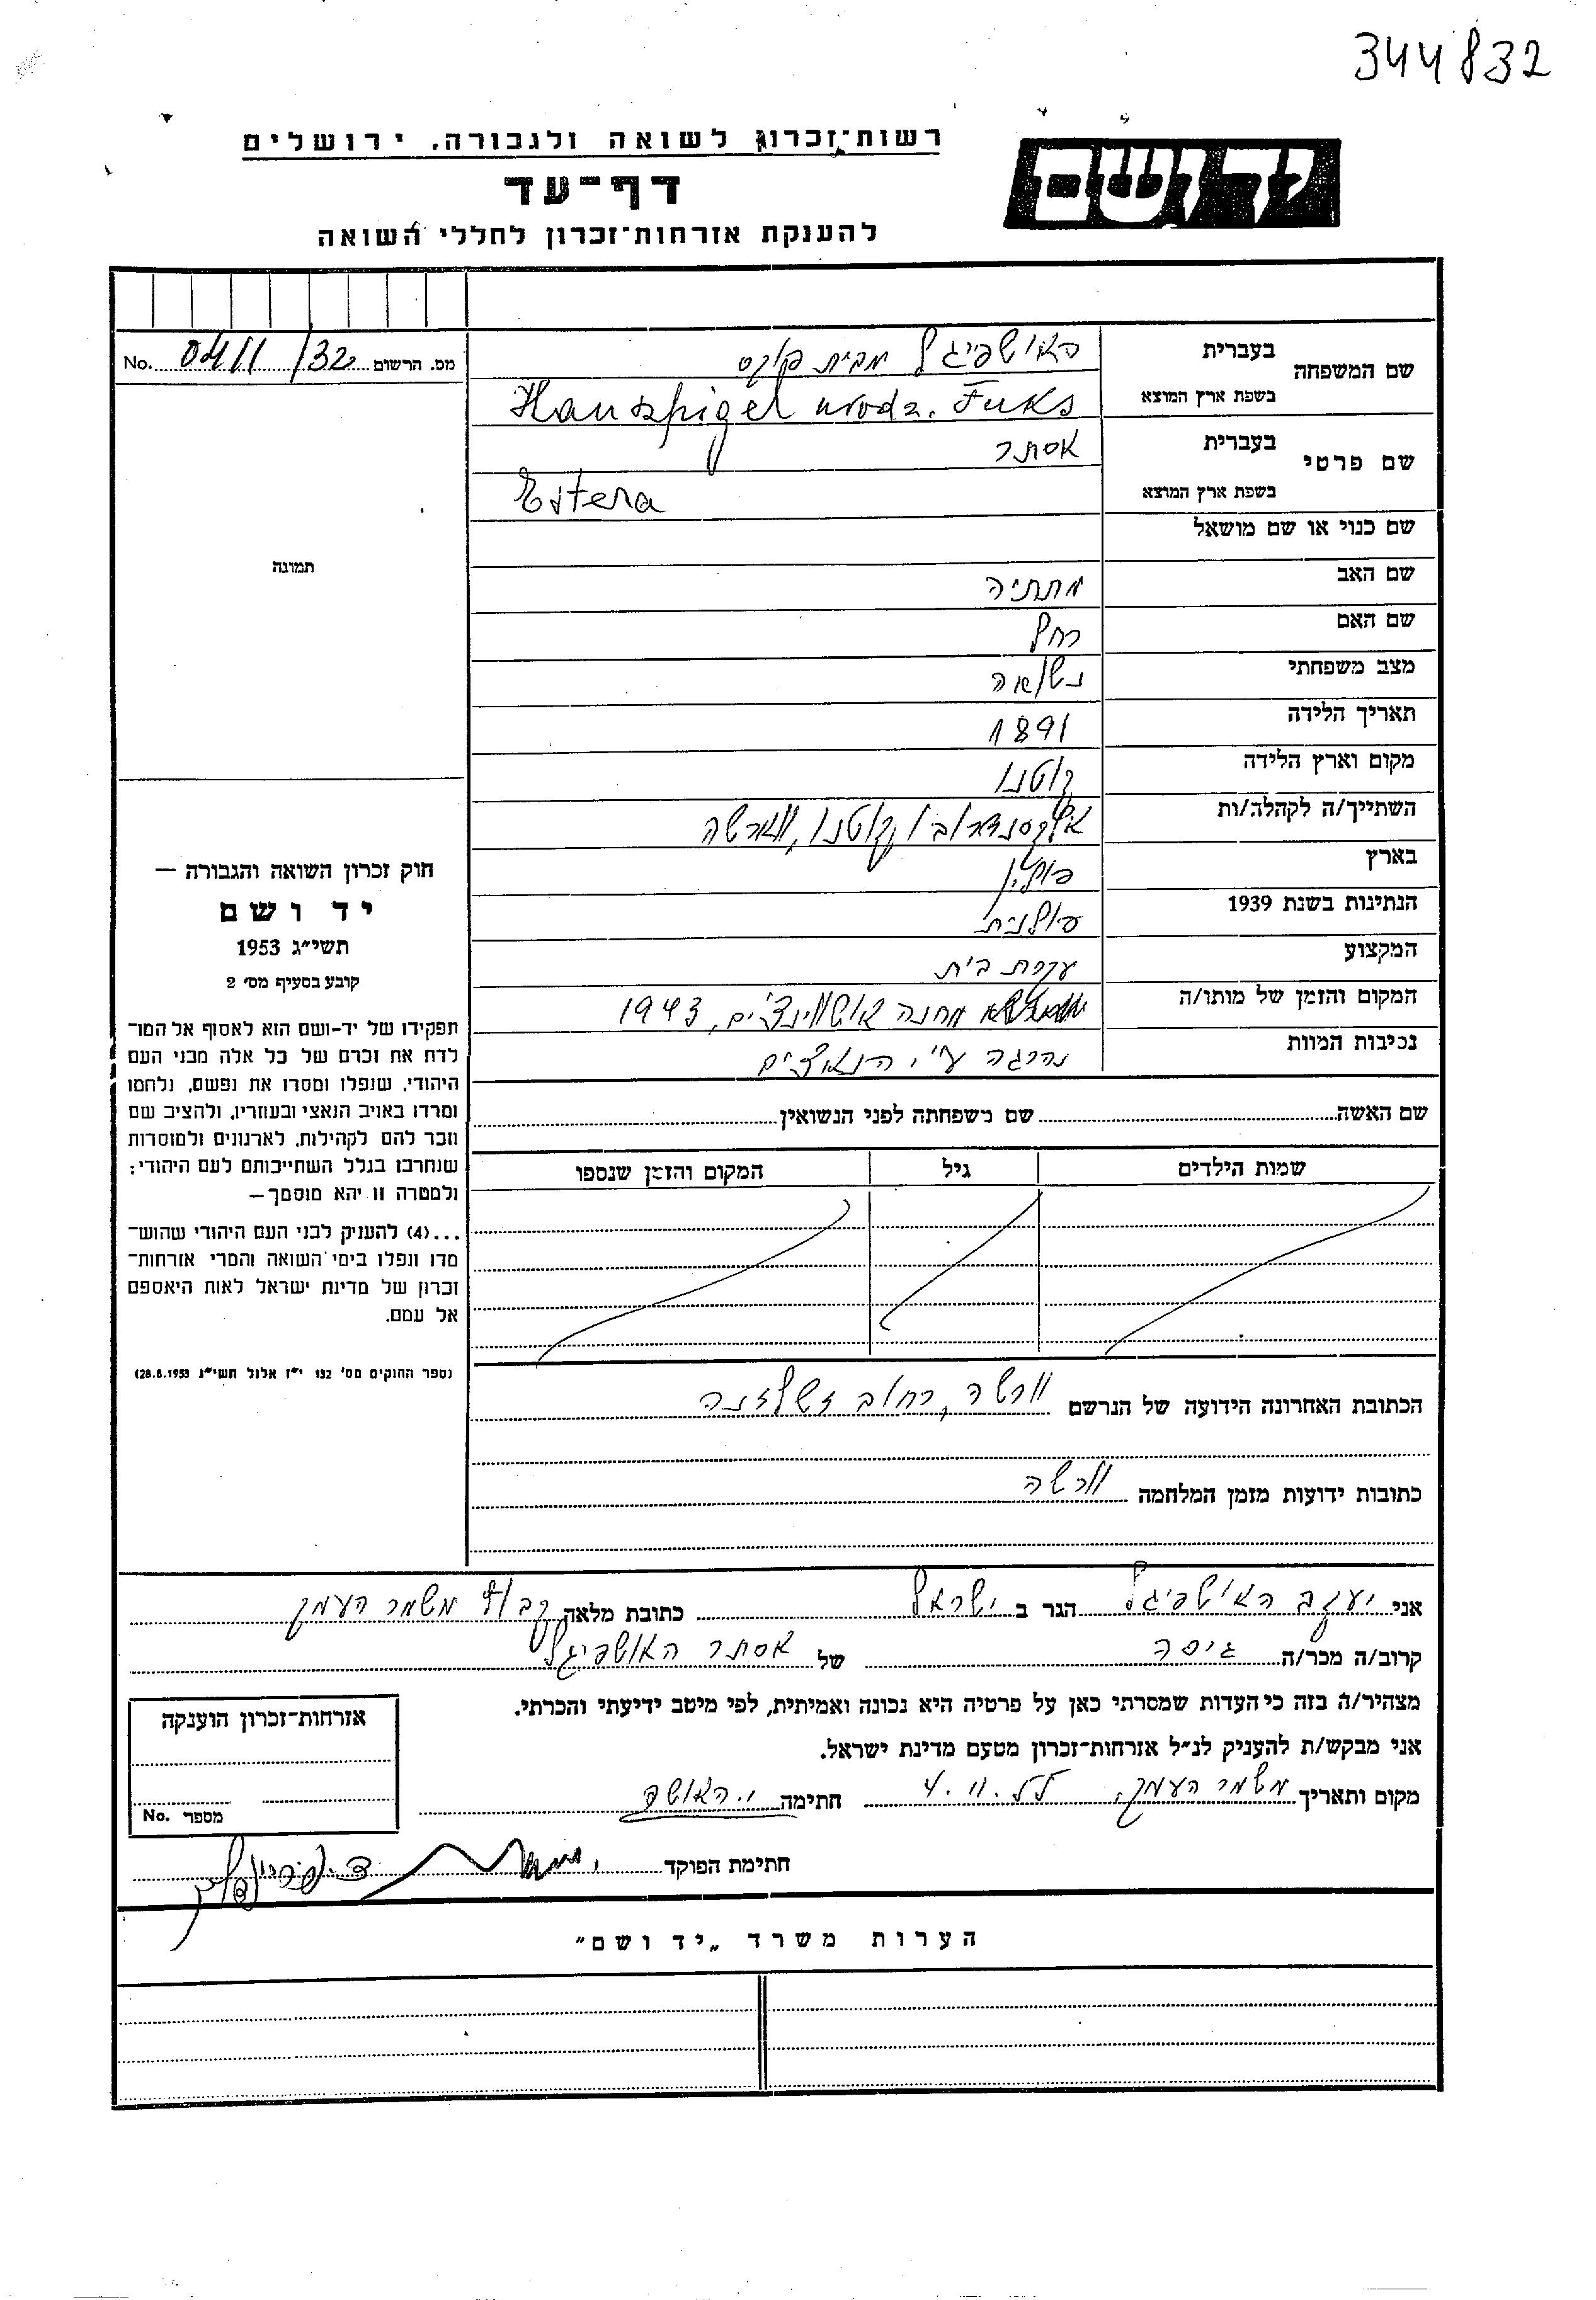 344832
יד ושם
רשות־זכרון לשואה ולגבורה, ירושלים
דף־עד
להענקת אזרחות־זכרון לחללי השואה
מס. הרשום 0411/32 No.
שם המשפחה בעברית האושפיגל מבית פוקס
בשפת ארץ המוצא Hauszpigel urodz. Fuks
שם פרטי בעברית אסתר
בשפת ארץ המוצא Estera
שם כנוי או שם מושאל
שם האב מתתיה
שם האם רחל
מצב משפחתי נשואה
תאריך הלידה 1891
מקום וארץ הלידה קוטנו
השתייך/ה לקהלה/ות אלקסנדרוב, קוטנו, ווארשה
בארץ פולין
הנתינות בשנת 1939 פולנית
המקצוע עקרת בית
המקום והזמן של מותו/ה מחנה אושווינצ'ים, 1943
נסיבות המוות נהרגה ע"י הנאצים
שם האשה שם משפחתה לפני הנשואין
שמות הילדים גיל המקום והזמן שנספו
הכתובת האחרונה הידועה של הנרשם וורשה, רחוב
כתובות ידועות מזמן המלחמה וורשה
תמונה
חוק זכרון השואה והגבורה —
יד ושם
תשי״ג 1953
קובע בסעיף מס׳ 2
תפקידו של יד-ושם הוא לאסוף אל המו־
לדת את זכרם של כל אלה מבני העם
היהודי, שנפלו ומסרו את נפשם, נלחמו
ומרדו באויב הנאצי ובעוזריו, ולהציב שם
וזכר להם לקהילות, לארגונים ולמוסדות
שנחרבו בגלל השתייכותם לעם היהודי;
ולמטרה זו יהא מוסמך—
...(4) להעניק לבני העם היהודי שהוש־
מדו ונפלו בימי השואה והמרי אזרחות־
זכרון של מדינת ישראל לאות היאספם
אל עמם.
(ספר החוקים מס׳ 132 י״ז אלול תשי״ג 28.8.1953)
אני יעקב האושפיגל הגר ב ישראל כתובת מלאה קבוץ משמר העמק
קרוב/ה מכר/ה גיסה של אסתר האושפיגל
מצהיר/ה בזה כי העדות שמסרתי כאן על פרטיה היא נכונה ואמיתית, לפי מיטב ידיעתי והכרתי.
אני מבקש/ת להעניק לנ״ל אזרחות־זכרון מטעם מדינת ישראל.
מקום ותאריך משמר העמק, חתימה י. האושפ
אזרחות־זכרון הוענקה
מספר No.
חתימת הפוקד
הערות משרד „יד ושם״